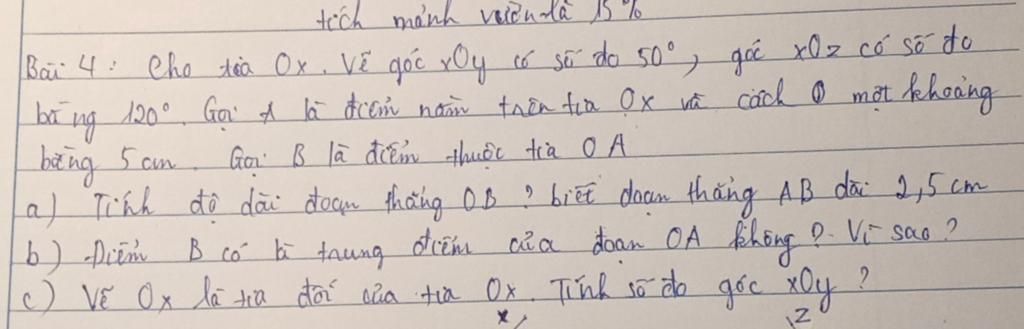 tích mảnh vườn là 15%
Bài 4: Cho tia Ox. Vẽ góc xOy có số đo 50°, góc xOz có số đo
bằng 120°. Gọi A là điểm nằm trên tia Ox và cách O một khoảng
bằng 5 cm. Gọi B là điểm thuộc tia OA
a) Tính độ dài đoạn thẳng OB ? biết đoạn thẳng AB dài 2,5 cm
b) Điểm B có là trung điểm của đoạn OA không ? Vì sao ?
c) Vẽ Ox là tia đối của tia Ox. Tính số đo góc xOy ?
x, z